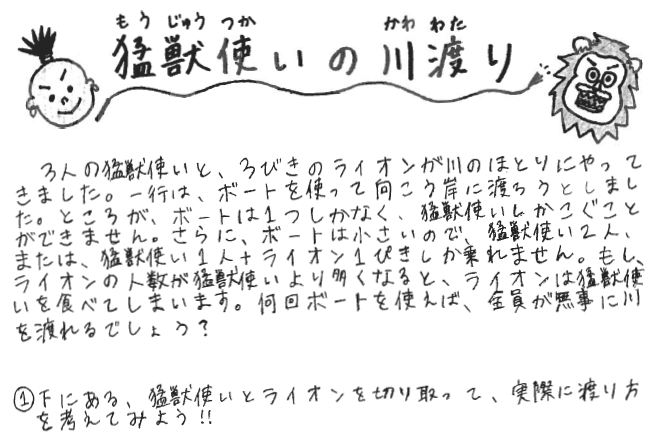 もう じゅう つか かわ わた
猛獣使いの川渡り
3人の猛獣使いと、3びきのライオンが川のほとりにやって
きました。一行は、ボートを使って向こう岸に渡ろうとしまし
た。ところが、ボートは1つしかなく、猛獣使いしかこぐこと
ができません。さらに、ボートは小さいので、猛獣使い2人、
または、猛獣使い1人+ライオン1ぴきしか乗れません。もし、
ライオンの人数が猛獣使いより多くなると、ライオンは猛獣使
いを食べてしまいます。何回ボートを使えば、全員が無事に川
を渡れるでしょう?
①下にある、猛獣使いとライオンを切り取って、実際に渡り方
を考えてみよう!!